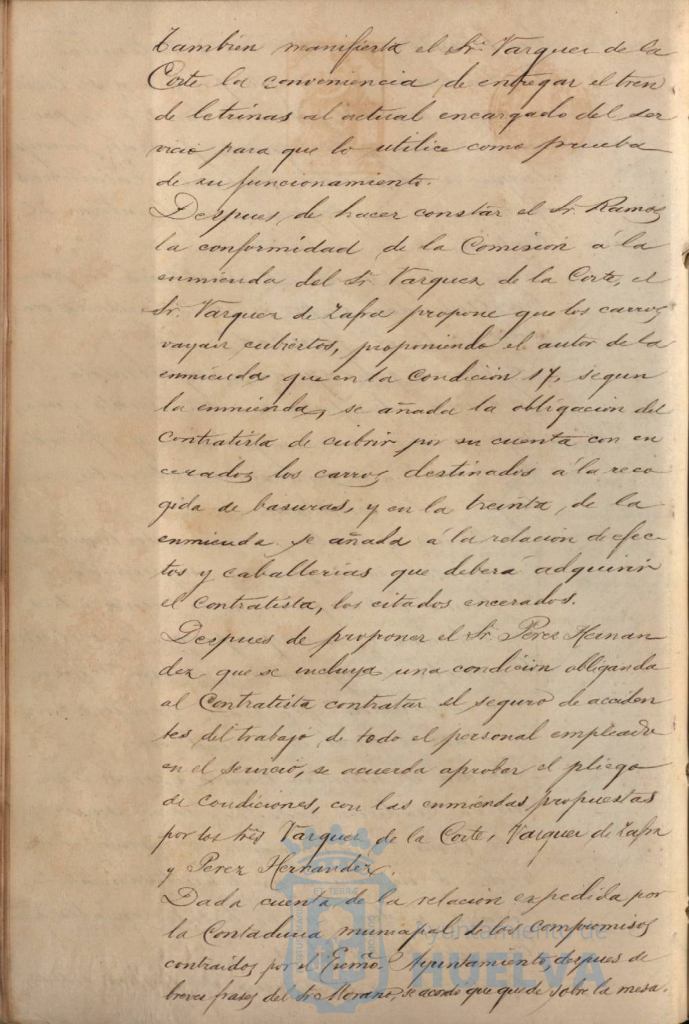 Tambien manifiesta el Sr. Vazquez de la
Corte la conveniencia de entregar el tren
de letrinas al actual encargado del ser
vicio para que lo utilice como prueba
de su funcionamiento.
Despues de hacer constar el Sr. Ramos
la conformidad de la Comision á la
enmienda del Sr. Vazquez de la Corte, el
Sr. Vazquez de Zafra propone que los carros
vayan cubiertos, proponiendo el autor de la
enmienda que en la condicion 17, segun
la enmienda, se añada la obligacion del
Contratista de cubrir por su cuenta con en
cerados los carros destinados á la reco
gida de basuras, y en la treinta, de la
enmienda se añada á la relacion de efec-
tos y caballerias que deberá adquirir
el Contratista, los citados encerados.
Despues de proponer el Sr. Perez Hernan
dez que se incluya una condicion obligando
al Contratista contratar el seguro de acciden
tes del trabajo de todo el personal empleado
en el servicio, se acuerda aprobar el pliego
de condiciones, con las enmiendas propuestas
por los tres Vazquez de la Corte, Vazquez de Zafra
y Perez Hernandez.
Dada cuenta de la relacion expedida por
la Contaduria municipal de los compromisos
contraidos por el Excmo. Ayuntamiento, despues de
breves frases del Sr. Morano, se acordó que quede sobre la mesa.
Ayuntamiento de
HUELVA